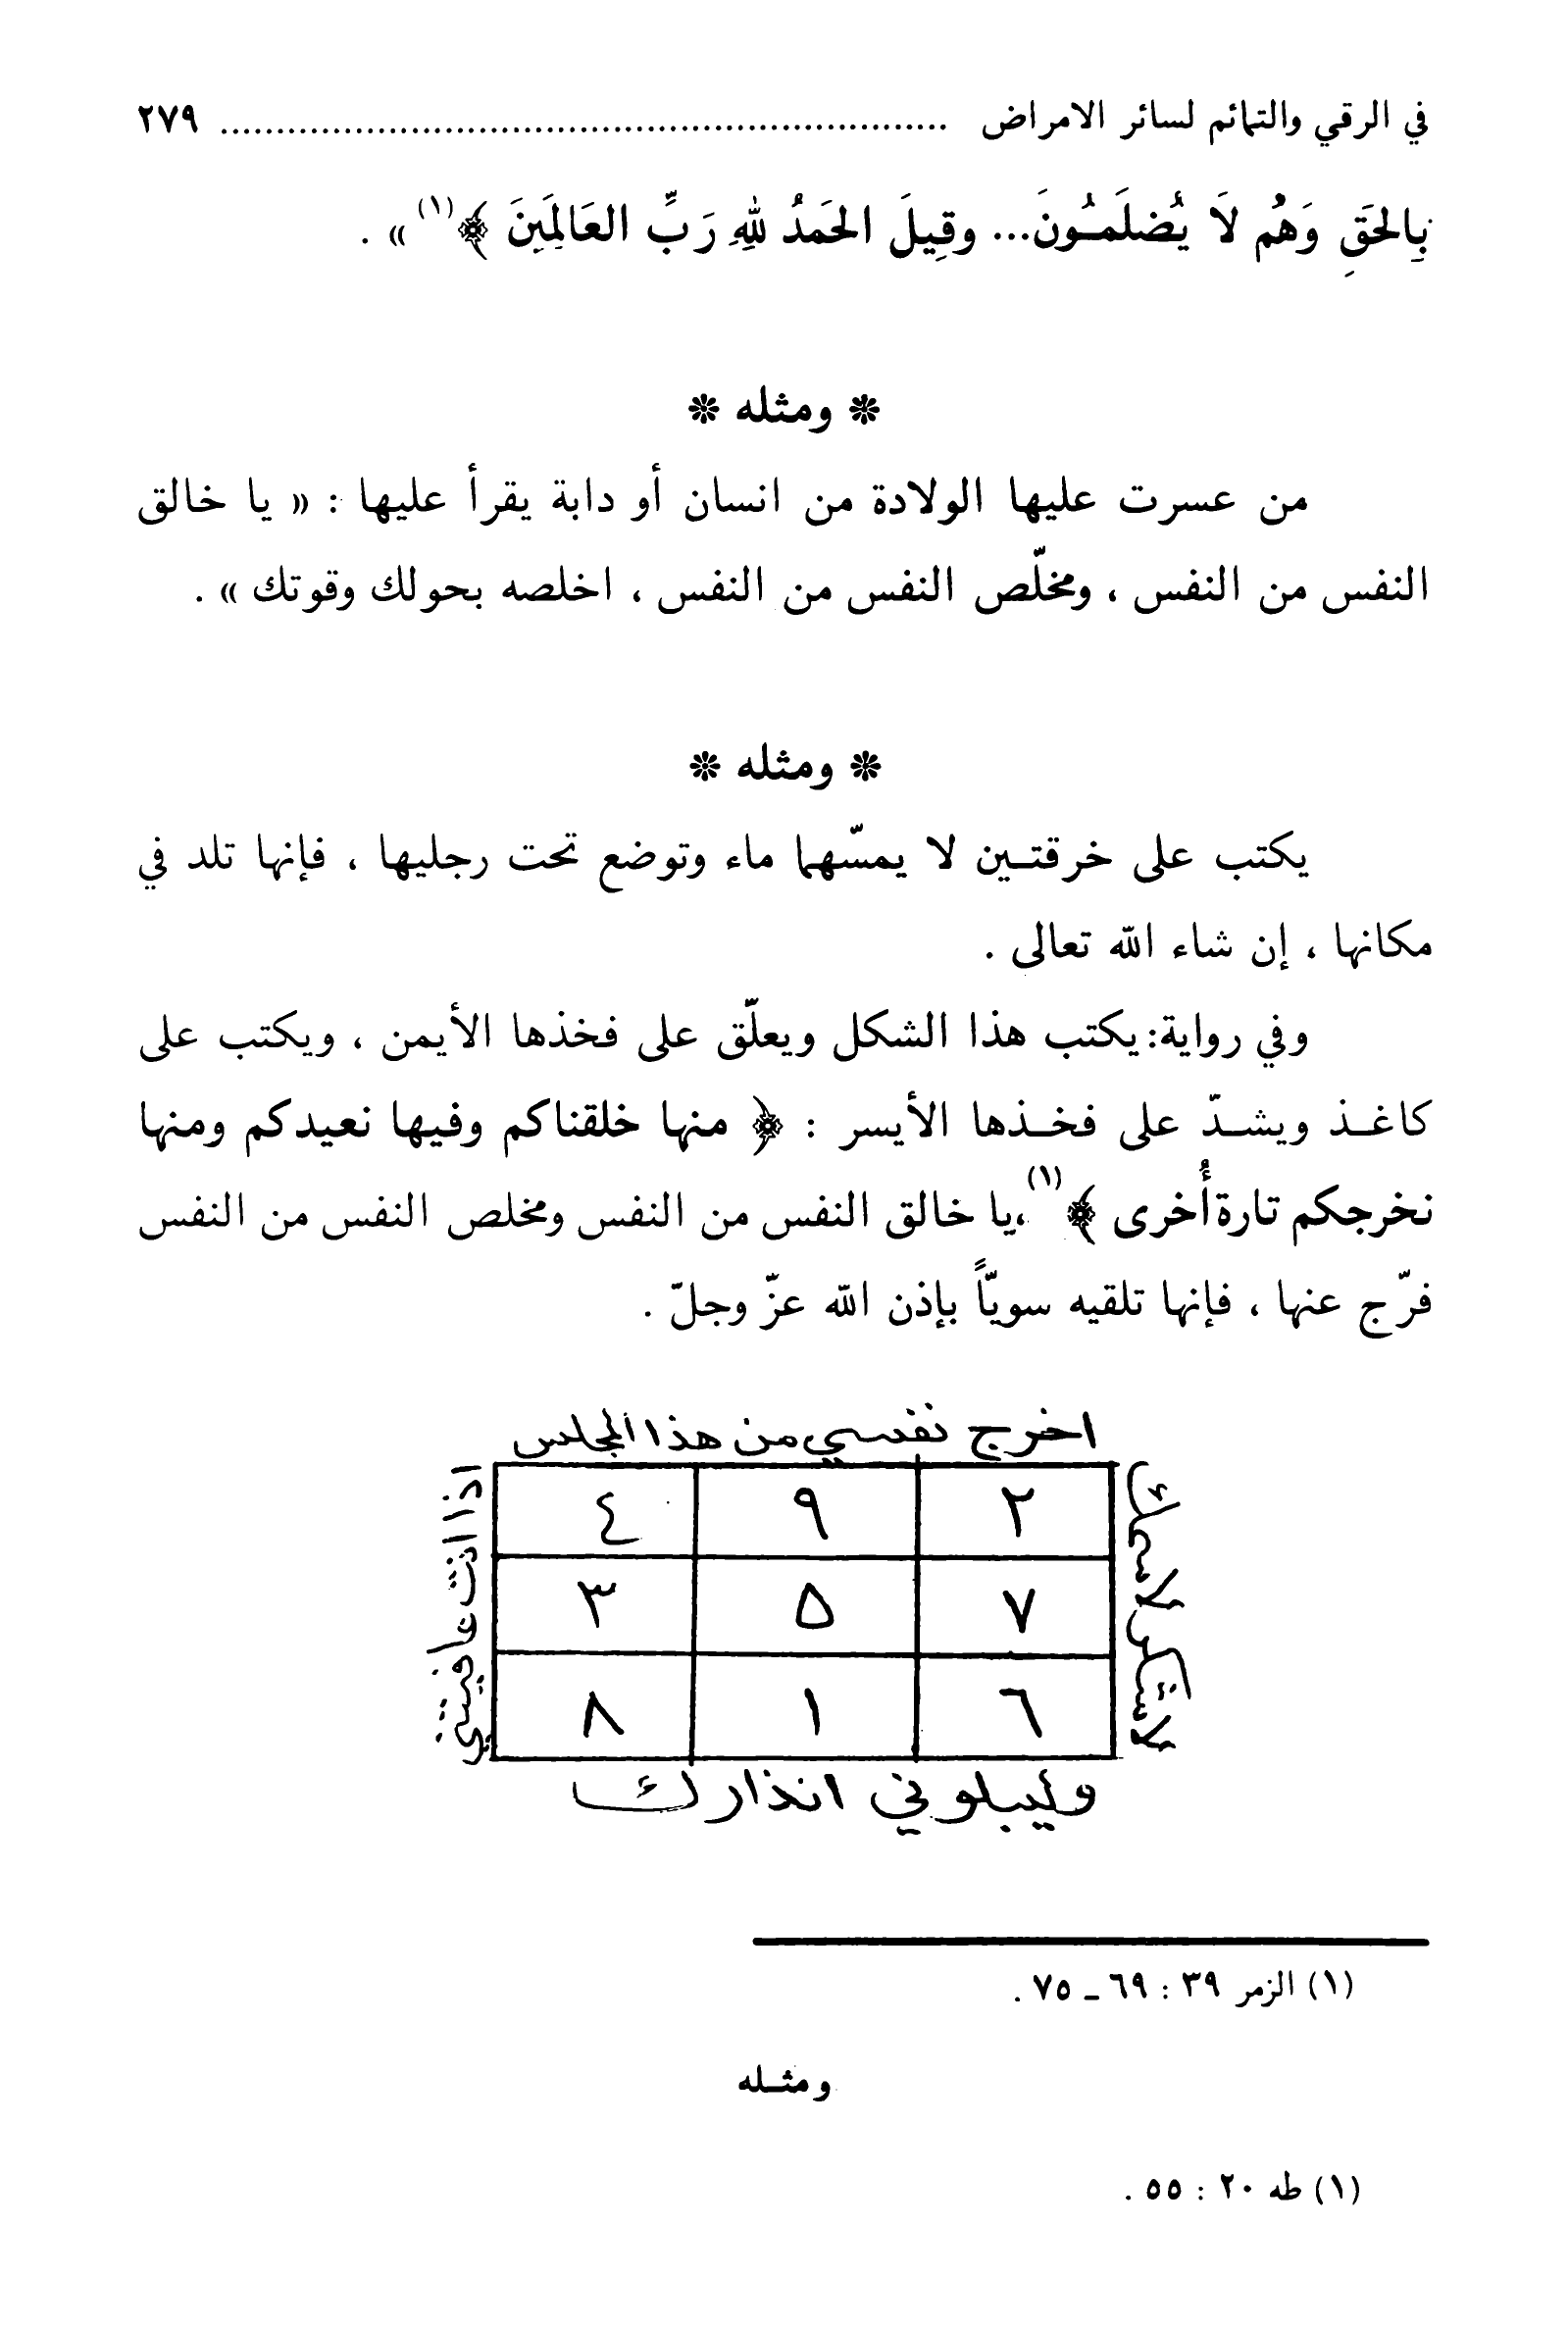 في الرقي والتمائم لسائر الامراض ................................................................. ٢٧٩
بِالحَقِ وَهُم لَا يُضلَمُـونَ... وقِيلَ الحَمدُ للهِ رَبِّ العَالَمِينَ ﴾(١) » .
❊ ومثله ❊
من عسرت عليها الولادة من انسان أو دابة يقرأ عليها : « يا خالق
النفس من النفس ، ومخلّص النفس من النفس ، اخلصه بحولك وقوتك » .
❊ ومثله ❊
يكتب على خرقتـين لا يمسّهما ماء وتوضع تحت رجليها ، فإنها تلد في
مكانها ، إن شاء الله تعالى .
وفي رواية: يكتب هذا الشكل ويعلّق على فخذها الأيمن ، ويكتب على
كاغـذ ويشـدّ على فخـذها الأيسر : ﴿ منها خلقناكم وفيها نعيدكم ومنها
نخرجكم تارة أُخرى ﴾(١) ،يا خالق النفس من النفس ومخلص النفس من النفس
فرّج عنها ، فإنها تلقيه سويّاً بإذن الله عزّ وجلّ .
اخرج نفسي من هذا المجلس
٢ ٩ ٤
٧ ٥ ٣
٦ ١ ٨
لاشكر لاسمك
اذا انت عافيتني
وليبلوني انذارك
(١) الزمر ٣٩ : ٦٩ ـ ٧٥ .
ومثـله
(١) طه ٢٠ : ٥٥ .